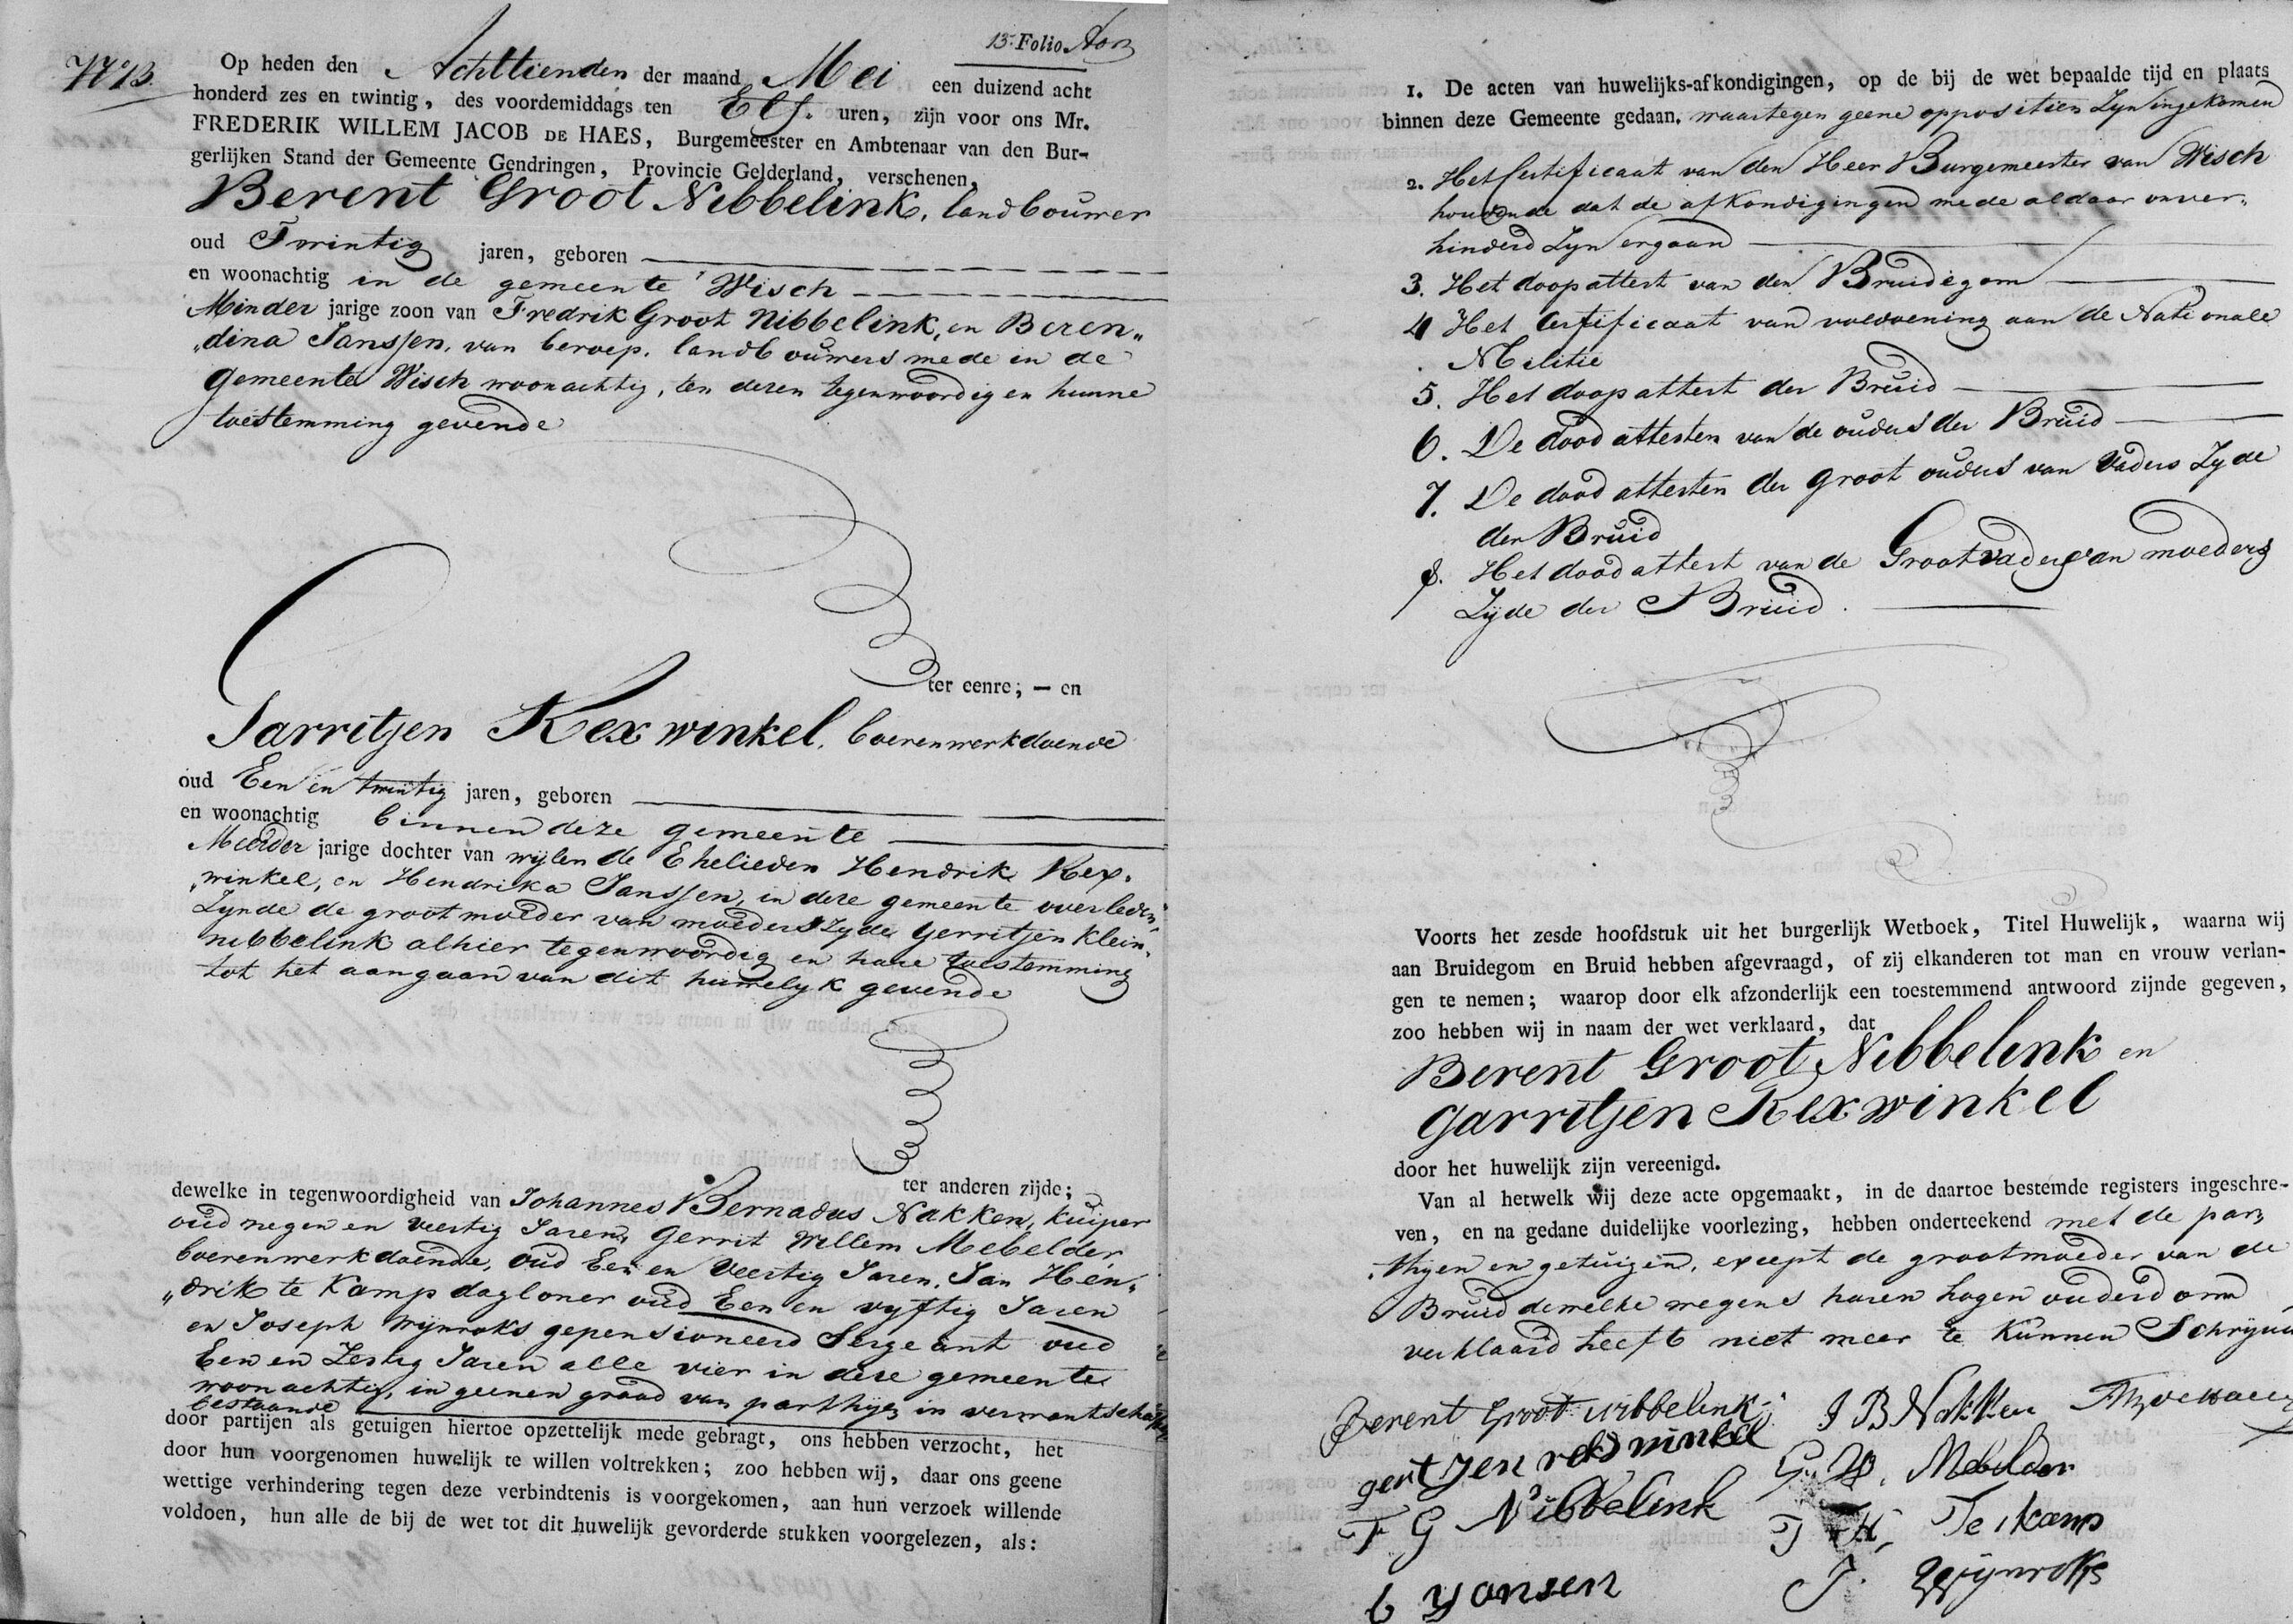 13e Folio
No 13.
Op heden den Achttienden der maand Mei een duizend acht
honderd zes en twintig, des voordemiddags ten Elf. uren, zijn voor ons Mr.
FREDERIK WILLEM JACOB DE HAES, Burgemeester en Ambtenaar van den Bur-
gerlijken Stand der Gemeente Gendringen, Provincie Gelderland, verschenen,
Berent Groot Nibbelink, landbouwer
oud Twintig jaren, geboren
en woonachtig in de gemeente Wisch
Minder jarige zoon van Fredrik Groot Nibbelink, en Beren„
„dina Janssen, van beroep. landbouwers mede in de
Gemeente Wisch woonachtig, ten dezen tegenwoordig en hunne
toestemming gevende
ter eenre; — en
Garritjen Rexwinkel, boerenwerkdoende
oud Een en twintig jaren, geboren
en woonachtig binnen deze gemeente
Meerder jarige dochter van wijlen de Ehelieden Hendrik Rex„
„winkel, en Hendrika Janssen, in deze gemeente overleden,
Zynde de grootmoeder van moeders Zyde Gerritjen Klein„
nibbelink alhier tegenwoordig en hare toestemming
tot het aangaan van dit huwelyk gevende
ter anderen zijde;
dewelke in tegenwoordigheid van Johannes Bernadus Nakken, Kuiper
oud negen en veertig Jaren, Gerrit Willem Mebelder,
boerenwerkdoende, oud Een en Veertig Jaren. Jan Hen„
„drik te Kamp dagloner oud Een en vyftig Jaren
en Joseph Wynroks gepensioneerd Sergeant oud
Een en Zestig Jaren alle vier in deze gemeente
woonachtig, in geenen graad van parthyen in verwantschap
bestaande
door partijen als getuigen hiertoe opzettelijk mede gebragt, ons hebben verzocht, het
door hun voorgenomen huwelijk te willen voltrekken; zoo hebben wij, daar ons geene
wettige verhindering tegen deze verbindtenis is voorgekomen, aan hun verzoek willende
voldoen, hun alle de bij de wet tot dit huwelijk gevorderde stukken voorgelezen, als:
1. De acten van huwelijks-afkondigingen, op de bij de wet bepaalde tijd en plaats
binnen deze Gemeente gedaan, waartegen geene oppositien Zyn ingekomen
2. Het Certificaat van den Heer Burgemeester van Wisch
houdende dat de afkondigingen mede aldaar onver„
hinderd Zyn ergaan
3. Het doopattest van den Bruidegom
4 Het Certificaat van voldoening aan de Nationale
Militie
5. Het doopattest der Bruid
6. De dood attesten van de ouders der Bruid
7. De dood attesten der Groot ouders van Vaders Zyde
der Bruid
8. Het dood attest van de Grootvader van moeders
Zyde der Bruid.
Voorts het zesde hoofdstuk uit het burgerlijk Wetboek, Titel Huwelijk, waarna wij
aan Bruidegom en Bruid hebben afgevraagd, of zij elkanderen tot man en vrouw verlan-
gen te nemen; waarop door elk afzonderlijk een toestemmend antwoord zijnde gegeven,
zoo hebben wij in naam der wet verklaard, dat
Berent Groot Nibbelink en
Garritjen Rexwinkel
door het huwelijk zijn vereenigd.
Van al hetwelk wij deze acte opgemaakt, in de daartoe bestemde registers ingeschre-
ven, en na gedane duidelijke voorlezing, hebben onderteekend met de par„
„thyen en getuigen, except de grootmoeder van de
Bruid dewelke wegens haren hogen ouderdom
verklaard heeft niet meer te Kunnen Schryven
Berent Groot nibbelink
J B Nakken
gerit jen reks winkel
G. W. Mebelder
F G Nibbelink
J H, Te kamp
b yonsen
J. Wynroks